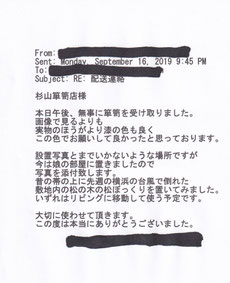 From:
Sent: Monday, September 16, 2019 9:45 PM
To:
Subject: RE: 配送連絡
杉山箪笥店様
本日午後、無事に箪笥を受け取りました。
画像で見るよりも
実物のほうがより漆の色も良く
この色でお願いして良かったと思っております。
設置写真とまでいかないような場所ですが
今は娘の部屋に置きましたので
写真を添付致します。
昔の帯の上に先週の横浜の台風で倒れた
敷地内の松の木の松ぼっくりを置いてみました。
いずれはリビングに移動して使う予定です。
大切に使わせて頂きます。
この度は本当にありがとうございました。